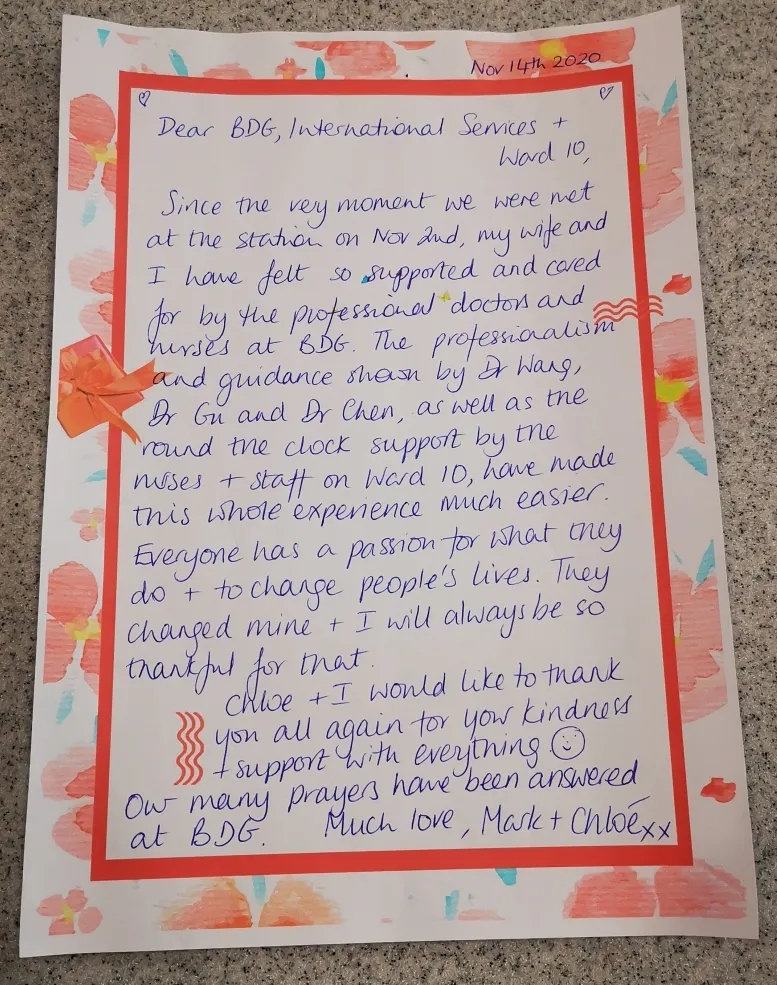 Nov 14th 2020
Dear BDG, International Services +
Ward 10,
Since the very moment we were met
at the station on Nov 2nd, my wife and
I have felt so supported and cared
for by the professional doctors and
nurses at BDG. The professionalism
and guidance shown by Dr Wang,
Dr Gu and Dr Chen, as well as the
round the clock support by the
nurses + staff on Ward 10, have made
this whole experience much easier.
Everyone has a passion for what they
do + to change people's lives. They
changed mine + I will always be so
thankful for that.
Chloe + I would like to thank
you all again for your kindness
+ support with everything ☺
Our many prayers have been answered
at BDG. Much love, Mark + Chloé xx